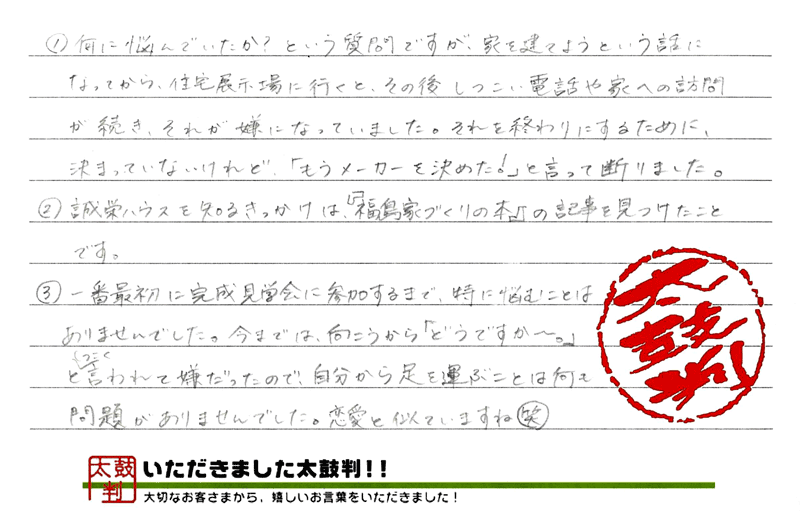 ①何に悩んでいたか？という質問ですが、家を建てようという話に
なってから、住宅展示場に行くと、その後しつこい電話や家への訪問
が続き、それが嫌になっていました。それを終わりにするために、
決まっていないけれど、「もうメーカーを決めた！」と言って断りました。
②誠栄ハウスを知るきっかけは、『福島家づくりの本』の記事を見つけたこと
です。
③一番最初に完成見学会に参加するまで、特に悩むことは
ありませんでした。今までは、向こうから「どうですか～。」
しつこく
と言われて嫌だったので、自分から足を運ぶことは何も
問題がありませんでした。恋愛と似ていますね(笑)
太鼓判
太鼓判
いただきました太鼓判！！
大切なお客さまから，嬉しいお言葉をいただきました！